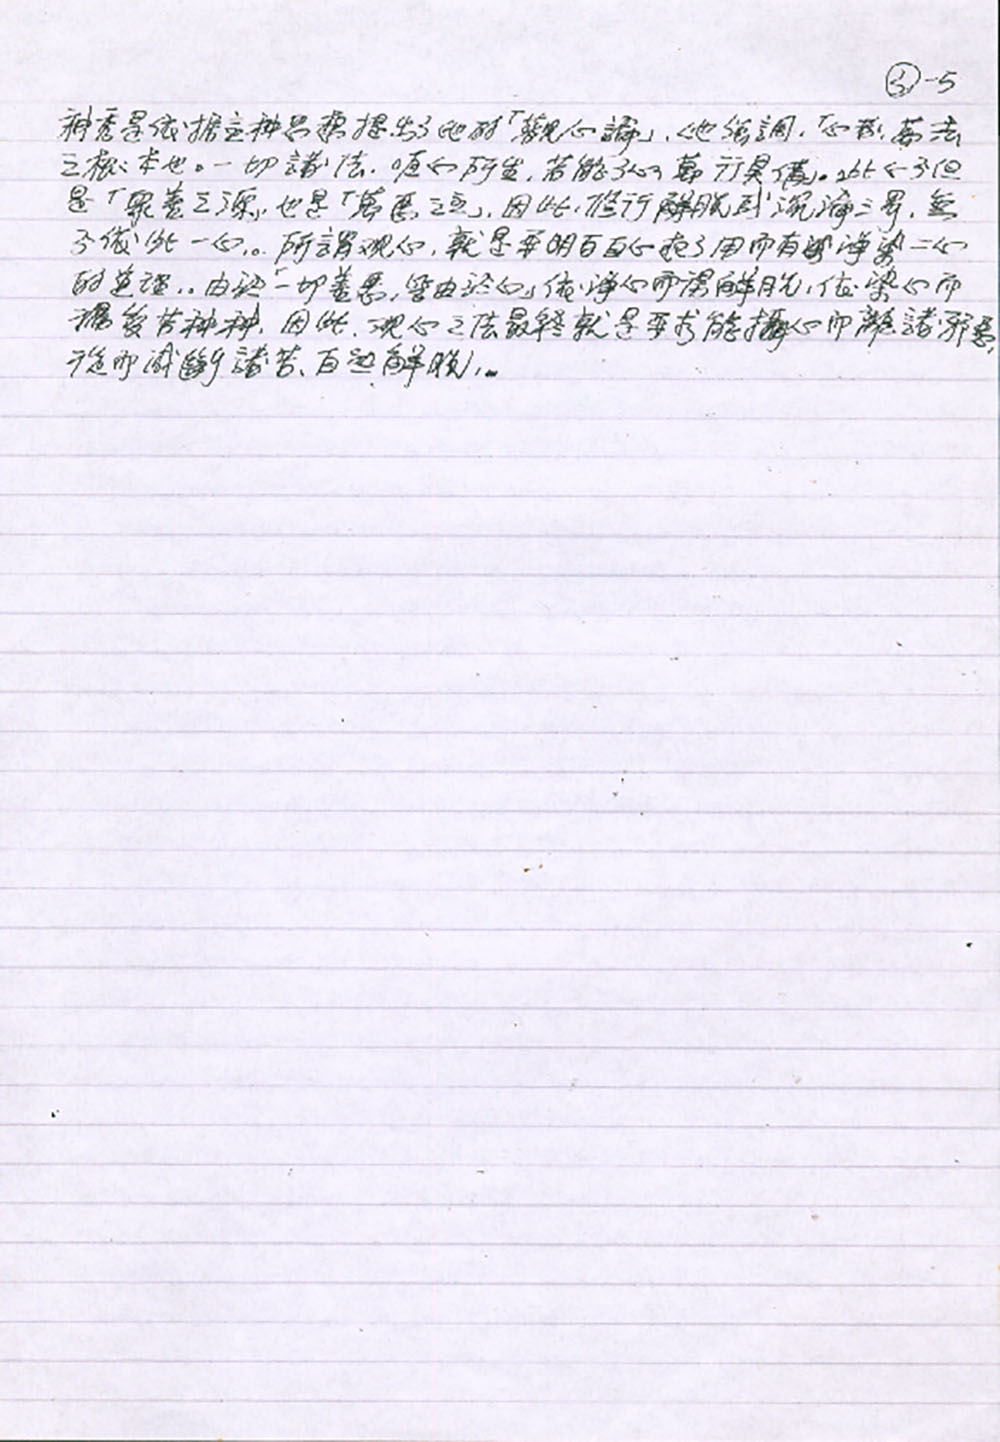 ③-5
神秀是依據這種思想提出了他的「觀心論」,他強調,「心者,萬法
之根本也。一切諸法,唯心所生,若能了心,萬行具備」。此心不但
是「眾善之源」,也是「萬惡之主」,因此,修行解脫或沉淪三界,無
不依此一心。所謂观心,就是要明白自心起了用而有淨染二心
的道理。由於「一切善惡,皆由於心」依淨心而得解脫,依染心而
受苦種種,因此,观心之法最終就是要求能攝心而離諸邪惡,
從而滅斷諸苦,自然解脫。